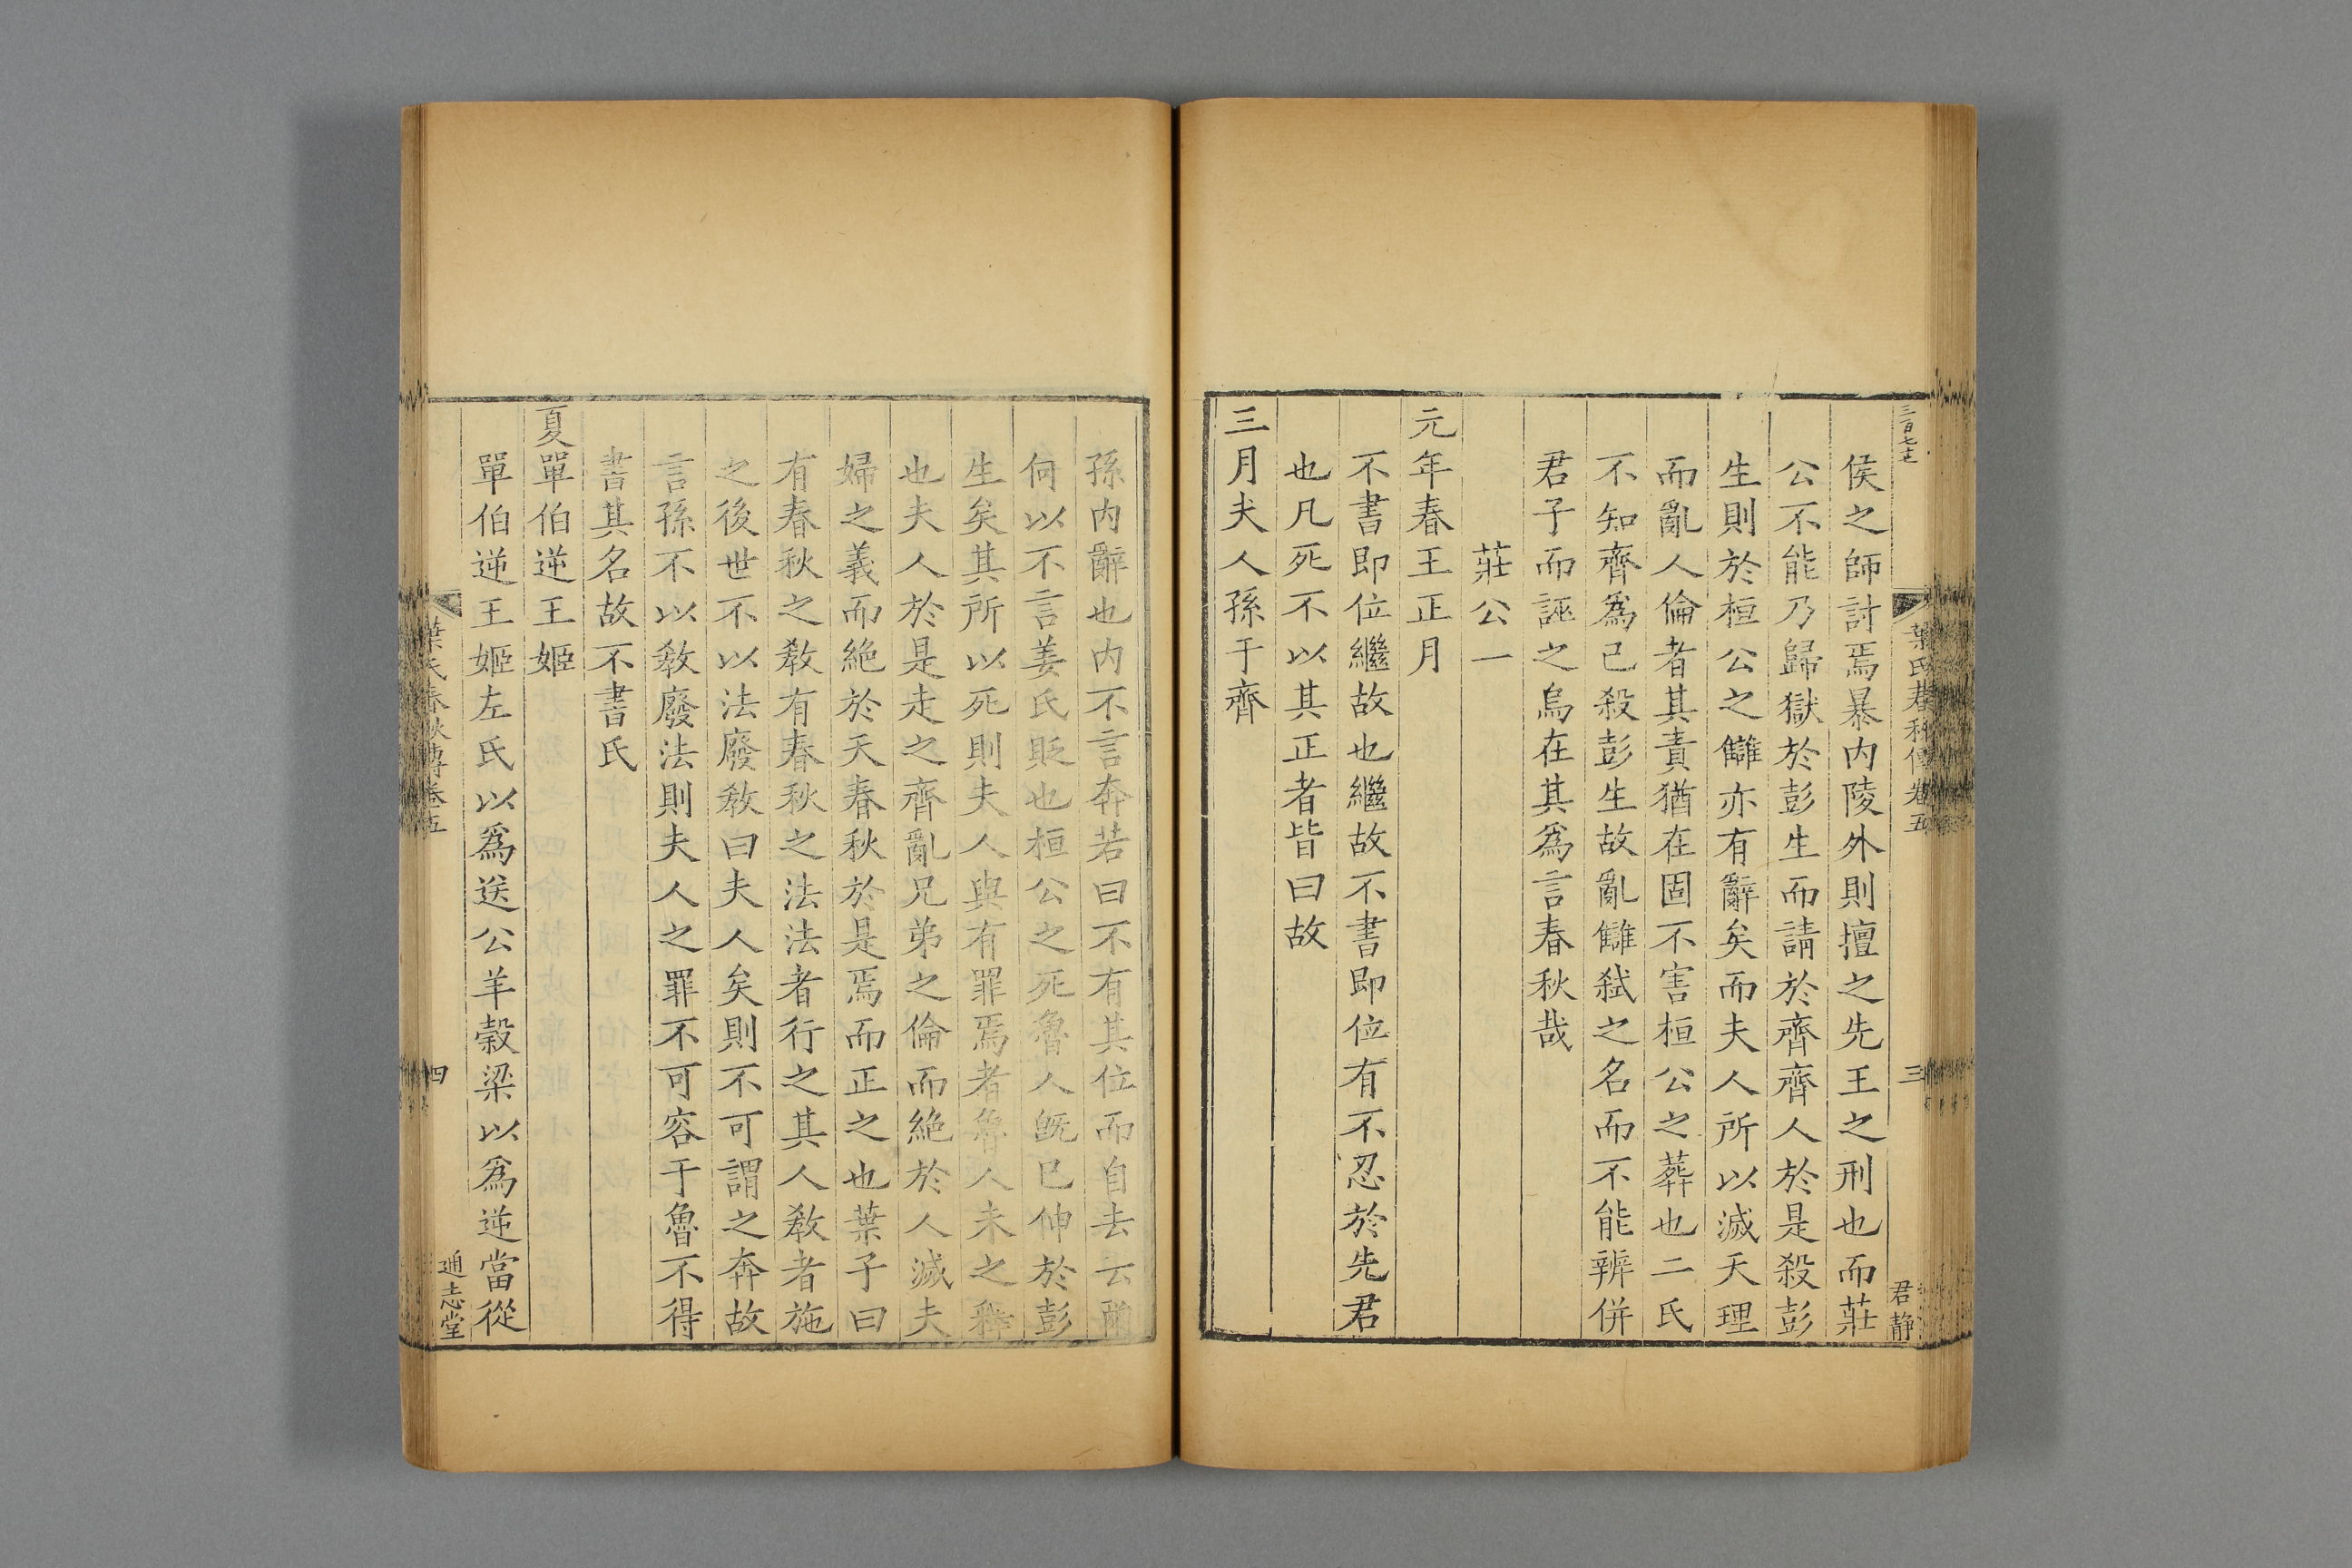 三百七十七
葉氏春秋傳卷五
三
君静
侯之師討焉暴内陵外則擅之先王之刑也而莊
公不能乃歸獄於彭生而請於齊齊人於是殺彭
生則於桓公之讎亦有辭矣而夫人所以滅天理
而亂人倫者其責猶在固不害桓公之葬也二氏
不知齊爲已殺彭生故亂讎弑之名而不能辨併
君子而誣之烏在其爲言春秋哉
莊公一
元年春王正月
不書即位繼故也繼故不書即位有不忍於先君
也凡死不以其正者皆曰故
三月夫人孫于齊
孫内辭也内不言奔若曰不有其位而自去云爾
何以不言姜氏貶也桓公之死魯人旣已伸於彭
生矣其所以死則夫人與有罪焉者魯人未之釋
也夫人於是走之齊亂兄弟之倫而絶於人滅夫
婦之義而絶於天春秋於是焉而正之也葉子曰
有春秋之敎有春秋之法法者行之其人敎者施
之後世不以法廢敎曰夫人矣則不可謂之奔故
言孫不以敎廢法則夫人之罪不可容于魯不得
書其名故不書氏
夏單伯逆王姬
單伯逆王姬左氏以爲送公羊榖梁以爲逆當從
葉氏春秋傳卷五
四
通志堂